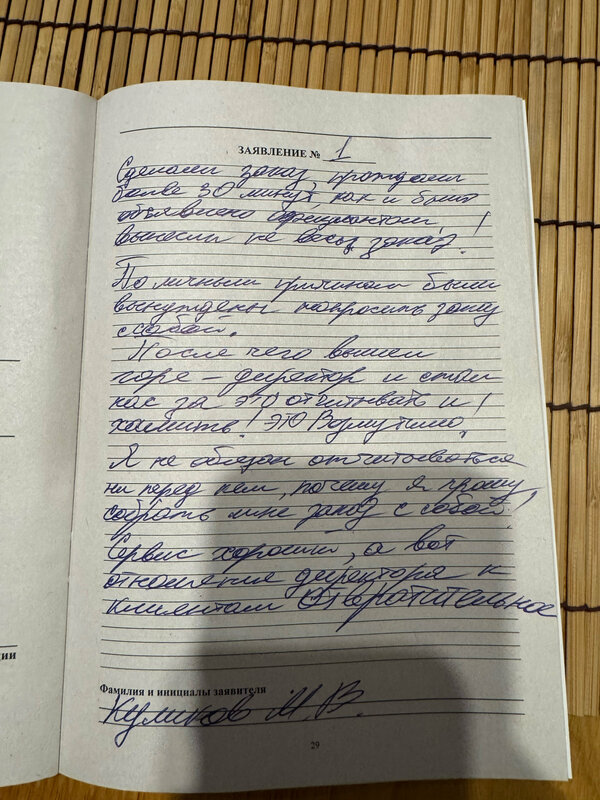 ЗАЯВЛЕНИЕ № 1
Сделали заказ, прождали
более 30 минут, как и было
объявлено официантом,
вынесли не весь заказ!
По личным причинам были
вынуждены попросить заказ
с собой.
После чего вышел
горе - директор и стал
нас за это отчитывать и
хамить! ЭТО Возмутимо!
Я не обязан отчитываться
ни перед кем, почему я прошу
собрать мне заказ с собой!
Сервис хороший, а вот
отношение директора к
клиентам отвратительное
ции
Фамилия и инициалы заявителя
Куликов М.В.
29